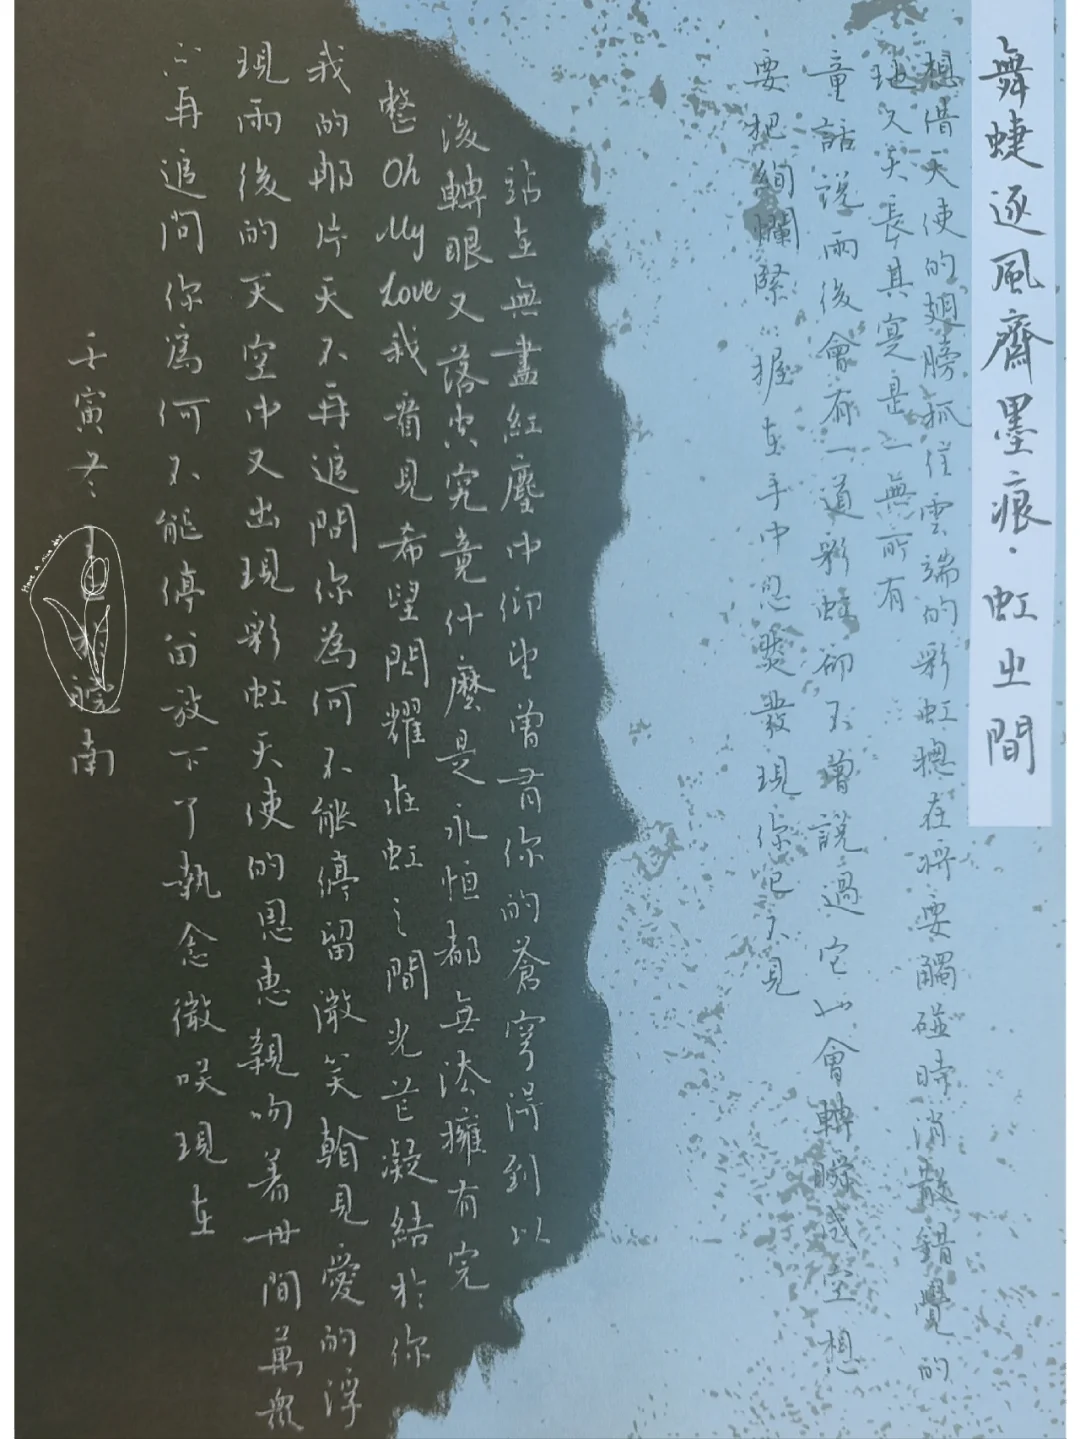 舞蝶逐風齋墨痕·虹之間
想借天使的翅膀抓住雲端的彩虹總在將要觸碰時消散錯覺的
地久天長其實是一無所有
童話說雨後會有一道彩虹卻不曾說過它也會轉瞬成空想
要把絢爛緊握在手中忽然發現你已不見
站在無盡紅塵中仰望曾有你的蒼穹得到以
後轉眼又落空究竟什麼是永恒都無法擁有完
整Oh My Love我看見希望閃耀在虹之間光芒凝結於你
我的那片天不再追問你為何不能停留微笑看見愛的浮
現雨後的天空中又出現彩虹天使的恩惠親吻著世間萬眾
不再追問你為何不能停留放下了執念微笑現在
壬寅冬
南
Have a nice day